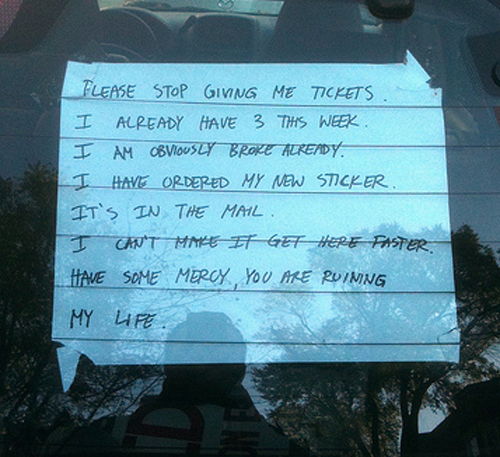 PLEASE STOP GIVING ME TICKETS.
I ALREADY HAVE 3 THIS WEEK.
I AM OBVIOUSLY BROKE ALREADY.
I HAVE ORDERED MY NEW STICKER.
IT'S IN THE MAIL.
I CAN'T MAKE IT GET HERE FASTER.
HAVE SOME MERCY, YOU ARE RUINING
MY LIFE.